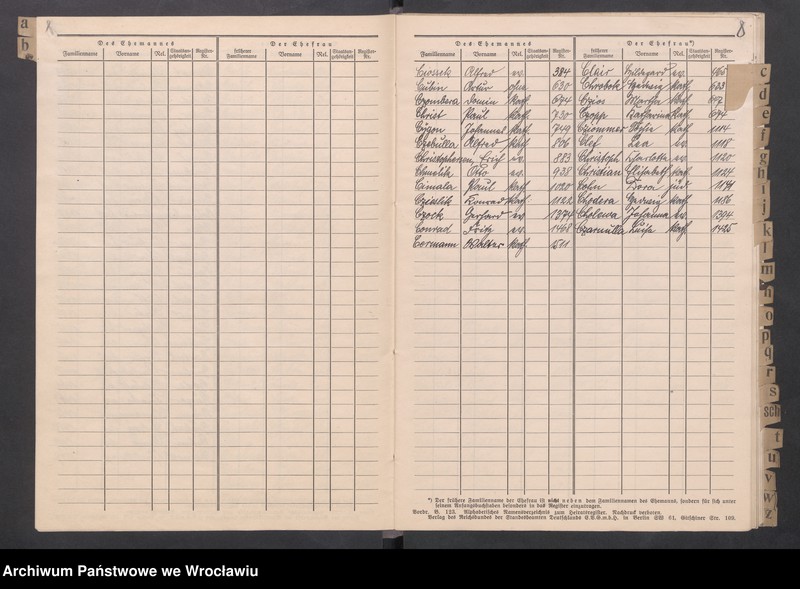 a
b
8
Des Ehemannes Der Ehefrau
Familienname Vorname Rel. Staatsangehörigkeit Register-Nr. früherer Familienname Vorname Rel. Staatsangehörigkeit Register-Nr.
8
Des Ehemannes Der Ehefrau*)
Familienname Vorname Rel. Staatsangehörigkeit Register-Nr. früherer Familienname Vorname Rel. Staatsangehörigkeit Register-Nr.
Alfred ev. 384 Clair Hildegard ev.
Cubin Artur 630 Chrobok kath. 623
Czombera kath. 674 Czios Martha kath.
Christ Paul kath. 730 Czopp Katharina kath. 694
Cygon Johannes kath. 749 kath. 1114
Czebulla Alfred kath. 806 Clef Lea ev. 1118
Christophersen, Erich ev. 883 Christoph Charlotte ev. 1120
Chmelik Otto ev. 938 Christian Elisabeth kath. 1124
Cimala Paul kath. 1020 Cohn Dora jüd.
Czieslik Konrad kath. 1122 Chodera kath. 1186
Czock Gerhard ev. 1374 Cholewa Johanna ev. 1394
Conrad Fritz ev. 1468 Czarnulla Luise kath. 1425
Cormann Walter kath. 1511
*) Der frühere Familienname der Ehefrau ist nicht neben dem Familiennamen des Ehemanns, sondern für sich unter
seinem Anfangsbuchstaben besonders in das Register einzutragen.
Vordr. B. 123. Alphabetisches Namensverzeichnis zum Heiratsregister. Nachdruck verboten.
Verlag des Reichsbundes der Standesbeamten Deutschlands E.V.G.m.b.H. in Berlin SW 61, Gitschiner Str. 109.
c
d
e
f
g
h
i
j
k
l
m
n
o
p
q
r
s
sch
t
u
v
w
z
Archiwum Państwowe we Wrocławiu